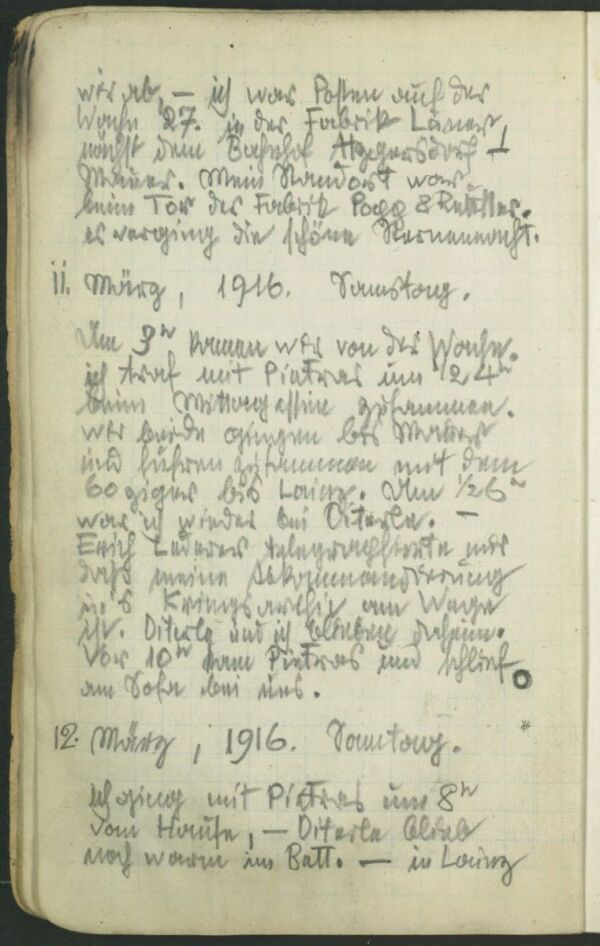 wir ab, — ich war Posten auf der
Wache 27. in der Fabrik
nächst dem Bahnhof Atzgersdorf –
Mauer. Mein Standort war
beim Tor der Fabrik Popp &
es verging die schöne Sternennacht.
11. März, 1916. Samstag.
Um 3h kamen wir von der Wache.
ich traf mit Pietras um 1/2 4h
beim Mittagessen zusammen.
wir beide gingen bis Mauer
und fuhren zusammen mit dem
60ziger bis Lainz. Um 1/2 6h
war ich wieder bei Diterle. —
Erich Lederer telegraphierte mir
daß meine Abkommandierung
in's am Wege
ist. Diterle und ich blieben daheim.
Vor 10h kam Pietras und schlief
am Sofa bei uns.
12. März, 1916. Sonntag.
ich ging mit Pietras um 8h
vom Hause, — Diterle blieb
noch warm im Bett. — in Lainz